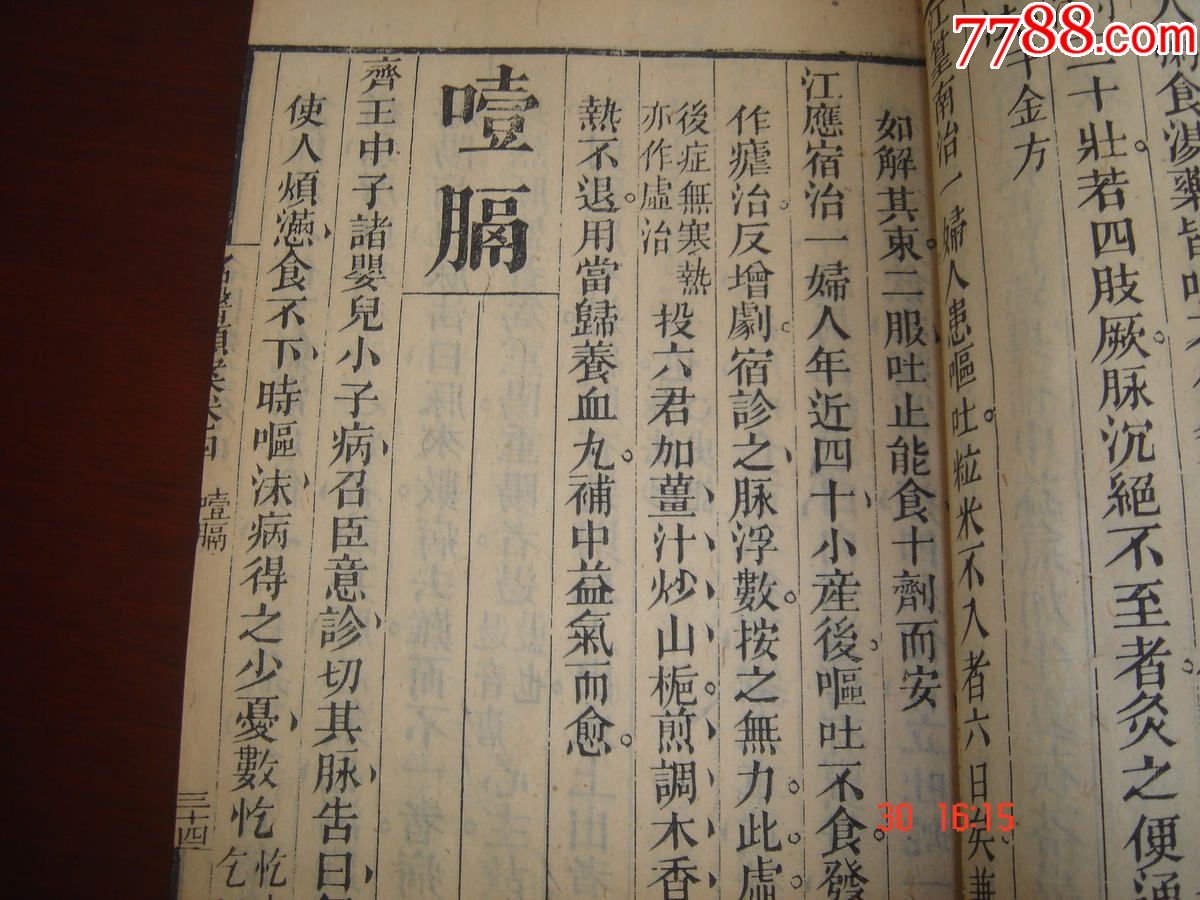 7788.com
人
食湯藥皆
二十壯若四肢厥脉沉絕不至者灸之便通
千金方
江篁南治一婦人患嘔吐粒米不入者六日矣兼
如解其束二服吐止能食十劑而安
江應宿治一婦人年近四十小産後嘔吐不食發
作瘧治反增劇宿診之脉浮數按之無力此虛
後症無寒熱
亦作虛治
投六君加薑汁炒山梔煎調木香
熱不退用當歸養血丸補中益氣而愈
噎膈
齊王中子諸嬰兒小子病召臣意診切其脉告曰
使人煩懣食不下時嘔沫病得之少憂數忔
忔
乞
名醫類案卷四 噎膈 三十四
30 16:15